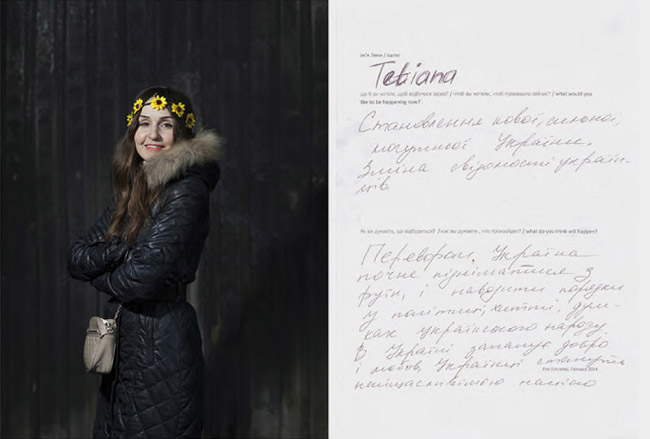 ім'я /имя / name
Tetiana
що б ви хотіли, щоб відбулося зараз? / чтоб вы хотели, чтоб произошло сейчас? / what would you
like to be happening now?
Становлення нової, сильної,
могутньої України.
Зміна свідомості україн-
ців
Як ви думаєте, що відбудеться? / как вы думаете, что произойдет? / what do you think will happen?
Переворот. Україна
почне підніматися з
руїн, і наводити порядки
у політиці, житті, дум-
ках українського народу.
В Україні запанує добро
і любов, Українці стануть
Kiev (Ukraine), February 2014.
найщасливішою нацією